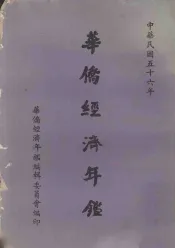 中華民國五十六年
華僑經濟年鑑
華僑經濟年鑑編輯委員會編印